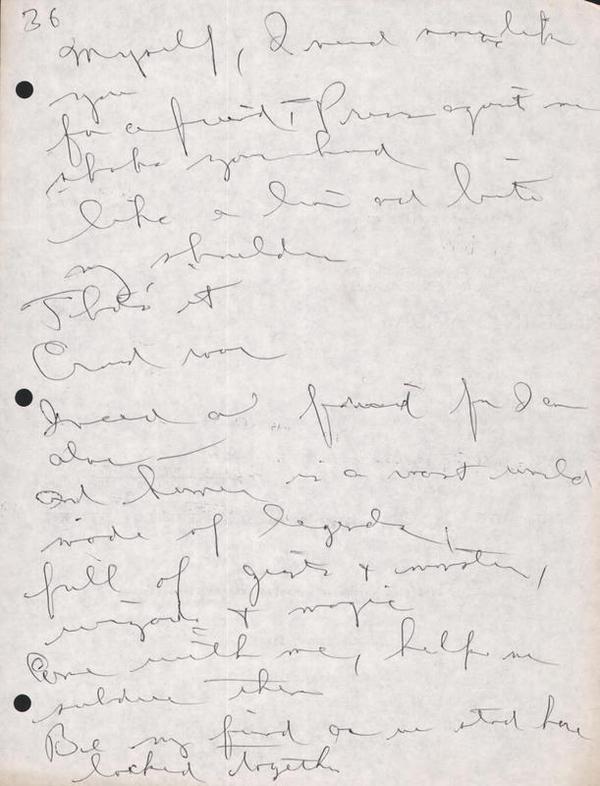 36
Myself, I need some, like
you
for a friend I Press against me
shake your head
like a lion and bite
my shoulder
That's it
Crowd roar
I need a friend for I am
alone —
and human is a vast world
made of legends,
full of giants & monsters,
wizards & magic
Come with me, help me
subdue them
Be my friend as we stand here
locked together